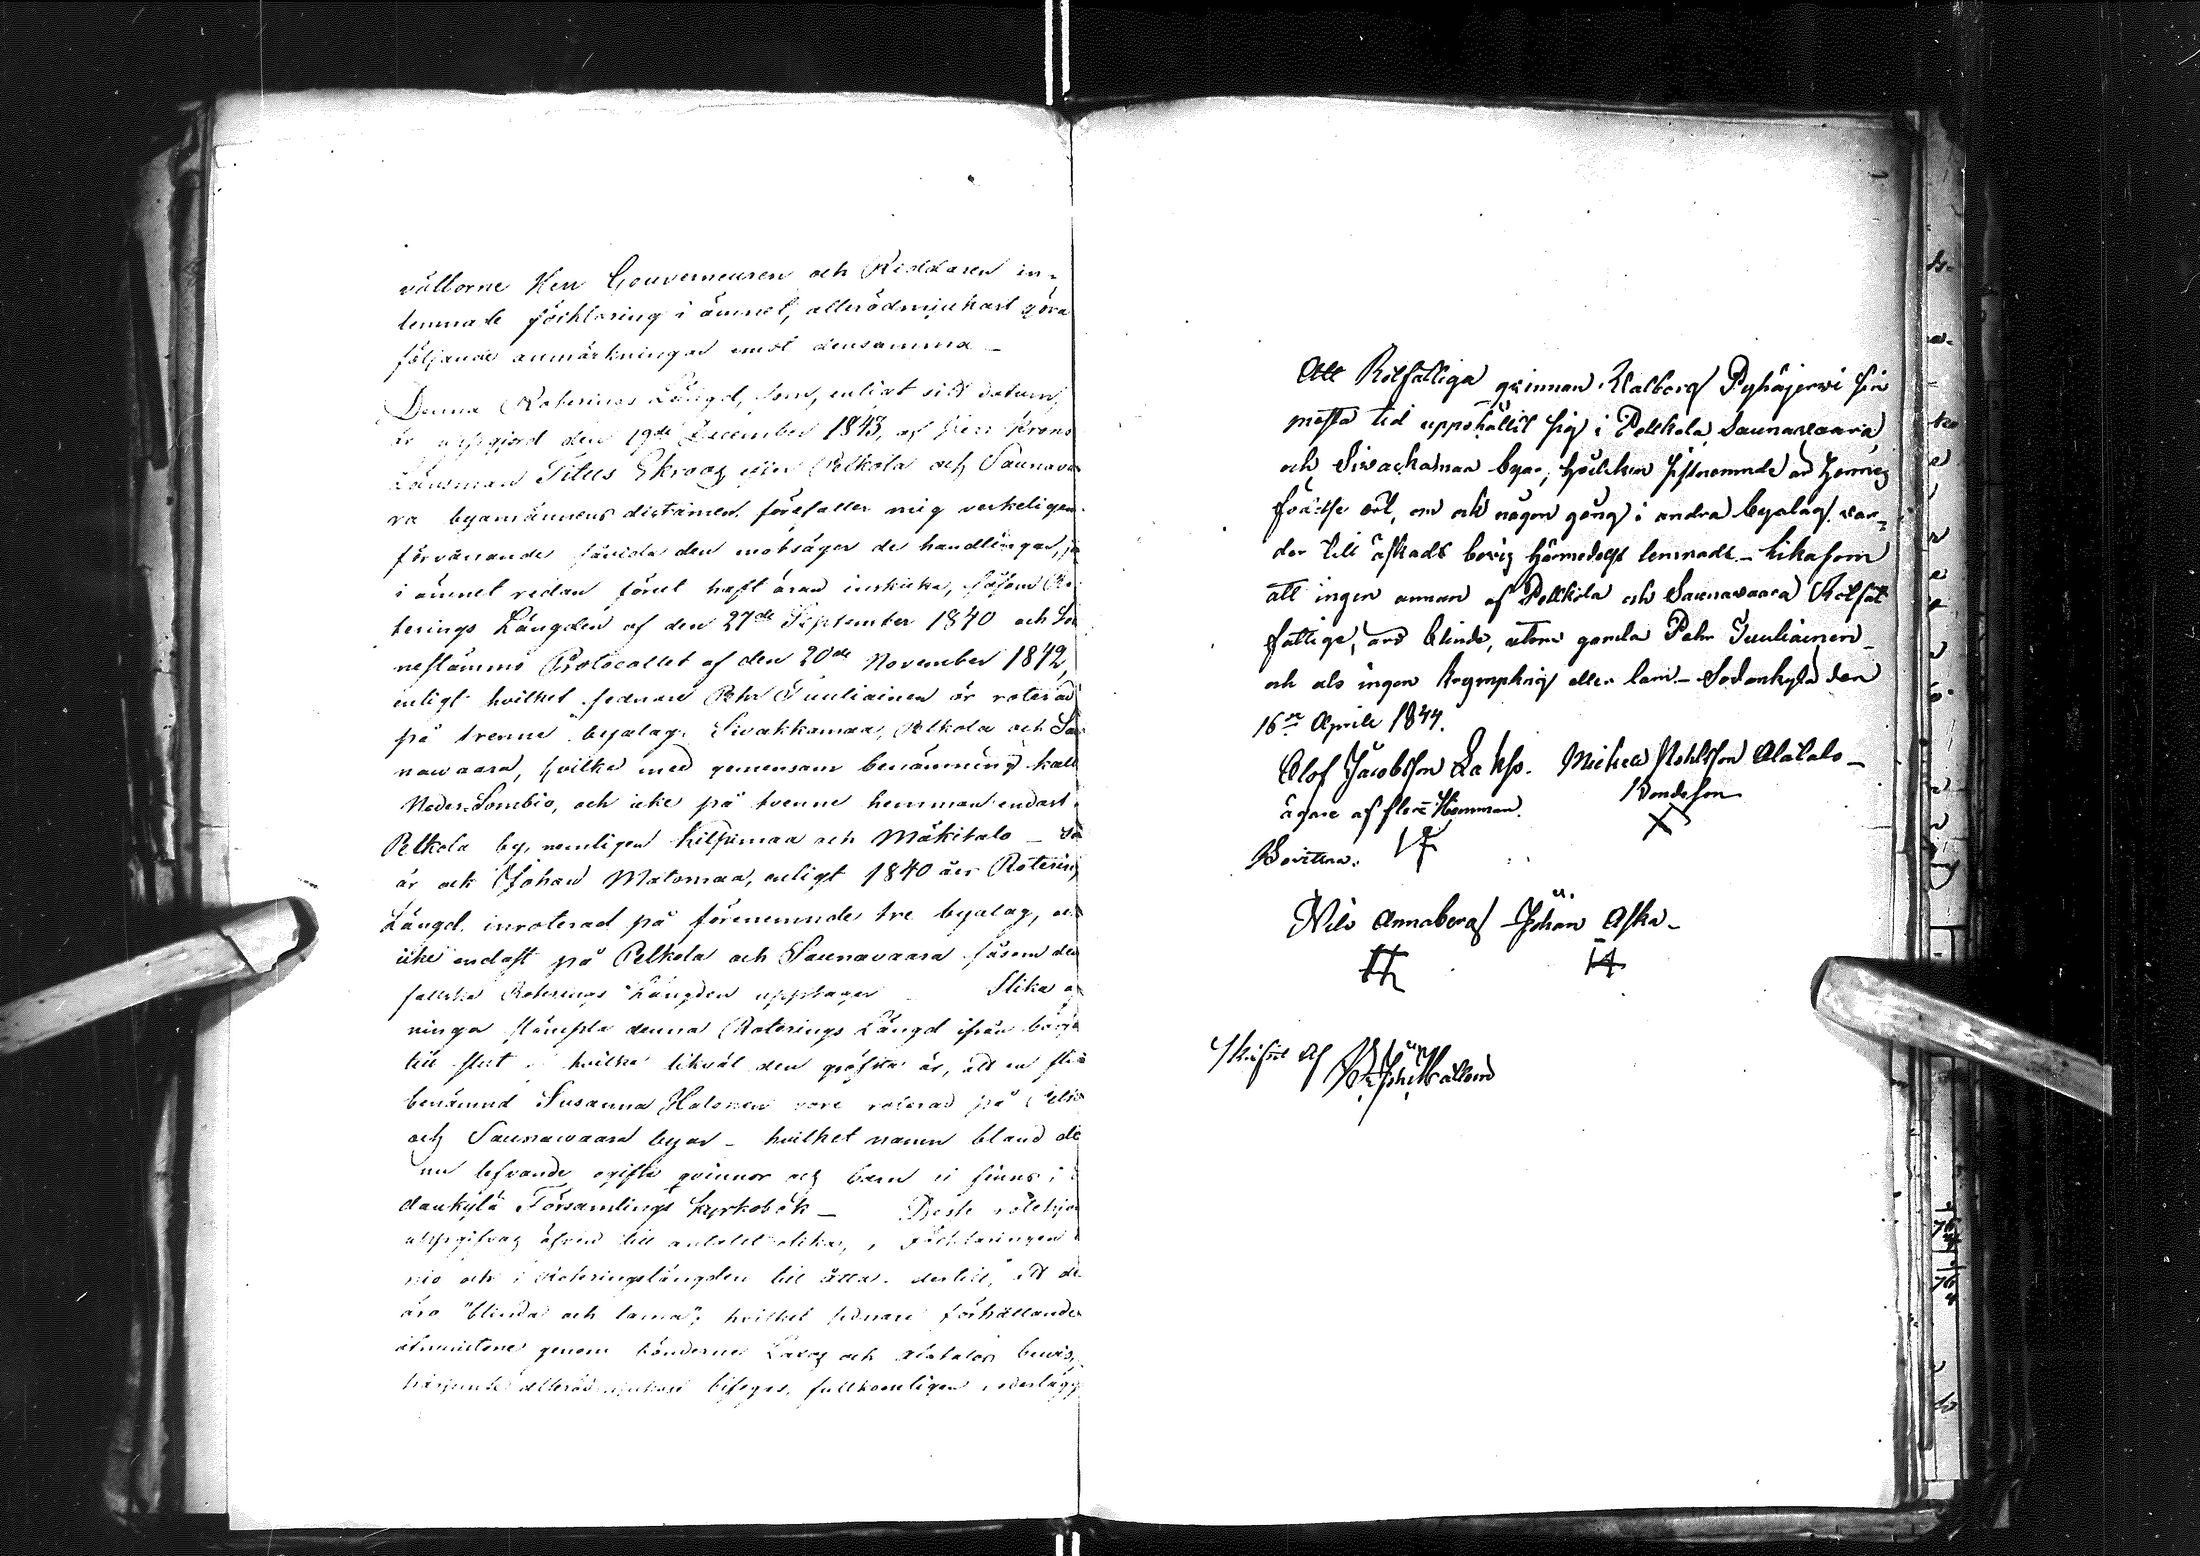 vällorne Herr Gouverneuren och Riddaren in-
lemnade förklaring i ämnet, allerödmjukast göra
följande anmärkningar emot densamma _
Denna Roterings Längd, som, enligt sitt datum,
är uppgjord den 19de December 1843, af Herr Krono
Länsman Titus Ekroos efter Pelkola och Saunava
ra byamännens dictamen, förefaller mig verkeligen
förvånande såvida den motsäger de handlingar, ja
i ämnet redan förut haft äran inskicka, såsom Ro-
terings Längden af den 27de September 1840 och So
nestämmo Protocollet af den 20de November 1842,
enligt hvilket sednare Pehr Juuliainen är roterad
på trenne byalag. Sivakkamaa, Pelkola och Sau
nawaara, hvilka med gemensam benämning kall
Neder Sombio, och icke på tvenne hemman endast
Pelkola by, nemligen Kilpimaa och Mäkitalo _ Så
är ock Johan Matomaa, enligt 1840 års Roterings
Längd, inroterad på förenemnde tre byalag, och
icke endast på Pelkola och Saunavaara såsom den
falska Roterings Längden upptager _ Slika
ningar stämpla denna Roterings Längd ifrån börja
till slut hvilka likväl den gröfsta är, att en
benämnd Susanna Halonen vore roterad på Pelk
och Saunawaara byar _ hvilket namn bland de
nu lefvande ogifta qvinnor och barn ei finns i
dankylä Församlings kyrkobok _ Desse rotehjon
uppgifvas äfven till antalet olika, i Förklaringen
nio och i Roteringslängden till åtta. dertill, att de
äro "blinda och lama"; hvilket sednare förhållande
åtminstone genom bönderne Laxos och Alatalos bevis,
härjemte allerödmjukast bifogas, fullkomligen vederlägg
Att Rotfattiga qvinnan Walborg Pyhäjerwi sin
mästa tid uppehållit sig i Pelkola, Saunavaara
och Siwackamaa byar, hvilken sistnemnde är hennes
födelse ort, om ock någon gång i andra byalag, var-
der till äskadt bevis härmedelst lemnadt _ likasom
att ingen annan af Pelkola och Saunawaara Rotfat
fattige, ärs blinde, utom gamla Pehr Juuliainen _
och als ingen krymphing eller lam _ Sodankylä den
16de Aprill 1844.
Olof Jacobsson Lakso. Michel Alatalo _
ägare af flere Hemman. Bondeson
Bevittna:
Nils Annaberg Johan Aska _
Skrifvit af